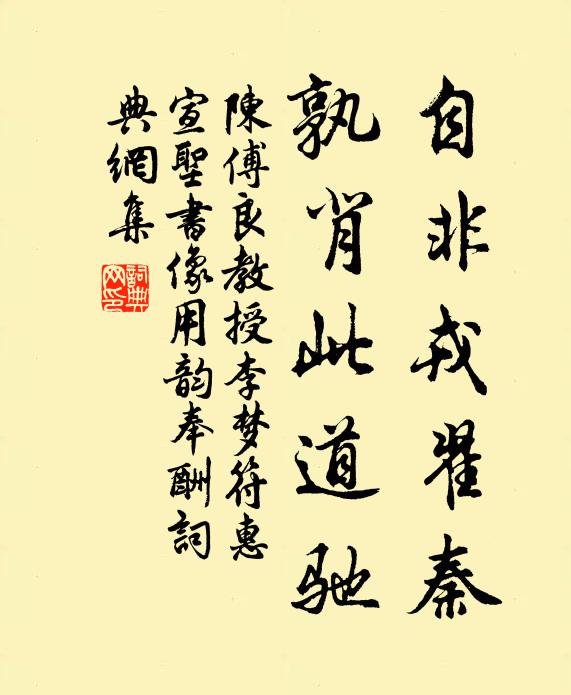 自非戎翟秦
孰肯此道馳
陳傅良教授李梦符惠
宣聖書像用韵奉酬詞
典網集
詞典
网印